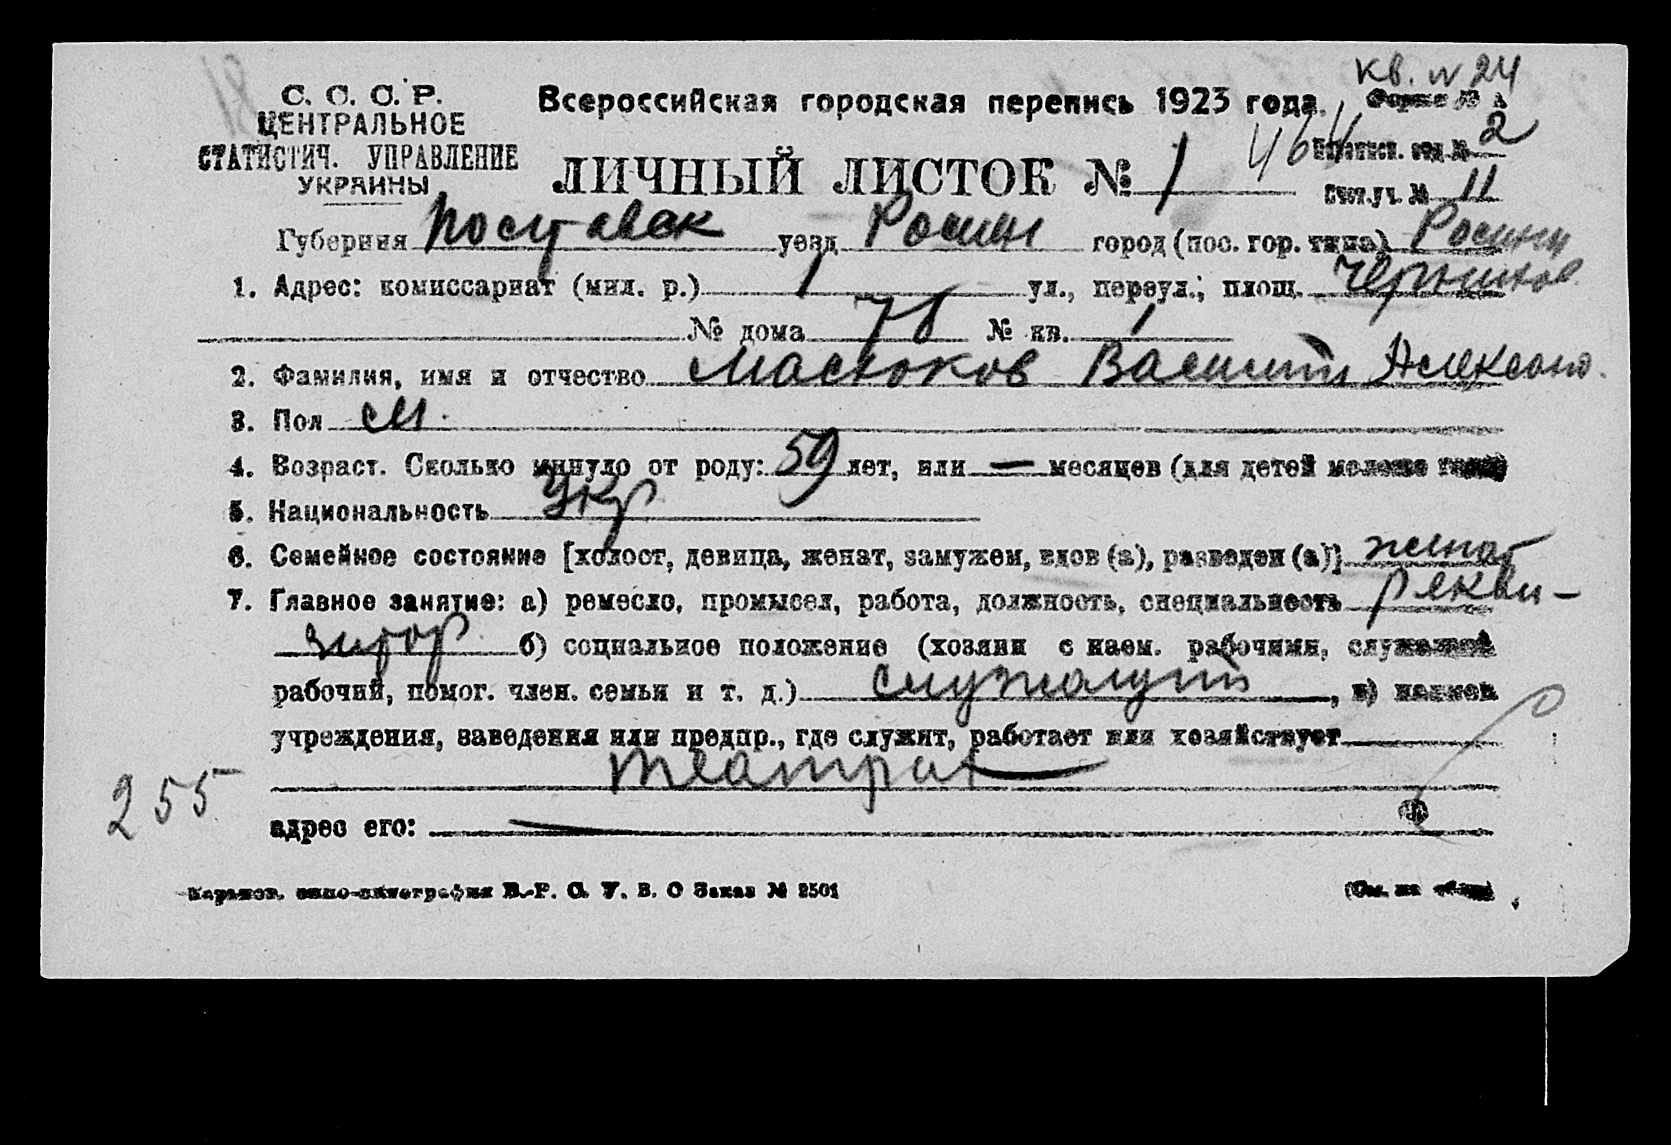 кв. № 24
С. С. С. Р.
ЦЕНТРАЛЬНОЕ
СТАТИСТИЧ. УПРАВЛЕНИЕ
УКРАИНЫ
Всероссийская городская перепись 1923 года.
Форма № А
ЛИЧНЫЙ ЛИСТОК № 1
464
2
Счетн.уч. № 11
Губерния уезд город (пос. гор. типа)
1. Адрес: комиссариат (мил. р.) 1 ул., переул., площ.
№ дома № кв. 1
2. Фамилия, имя и отчество Василий Александ.
3. Пол М.
4. Возраст. Сколько минуло от роду: 59 лет, или — месяцев (для детей моложе года)
5. Национальность Укр
6. Семейное состояние [холост, девица, женат, замужем, вдов (а), разведен (а)] женат
7. Главное занятие: а) ремесло, промысел, работа, должность, специальность рекви-
зитор б) социальное положение (хозяин с наем. рабочими, служащий
рабочий, помог. член. семьи и т. д.) служащий, в) наимен.
учреждения, заведения или предпр., где служит, работает или хозяйствует
театр
255
адрес его: —
В.-Р. С. У. В. О Заказ № 2501
(См. на обор.)